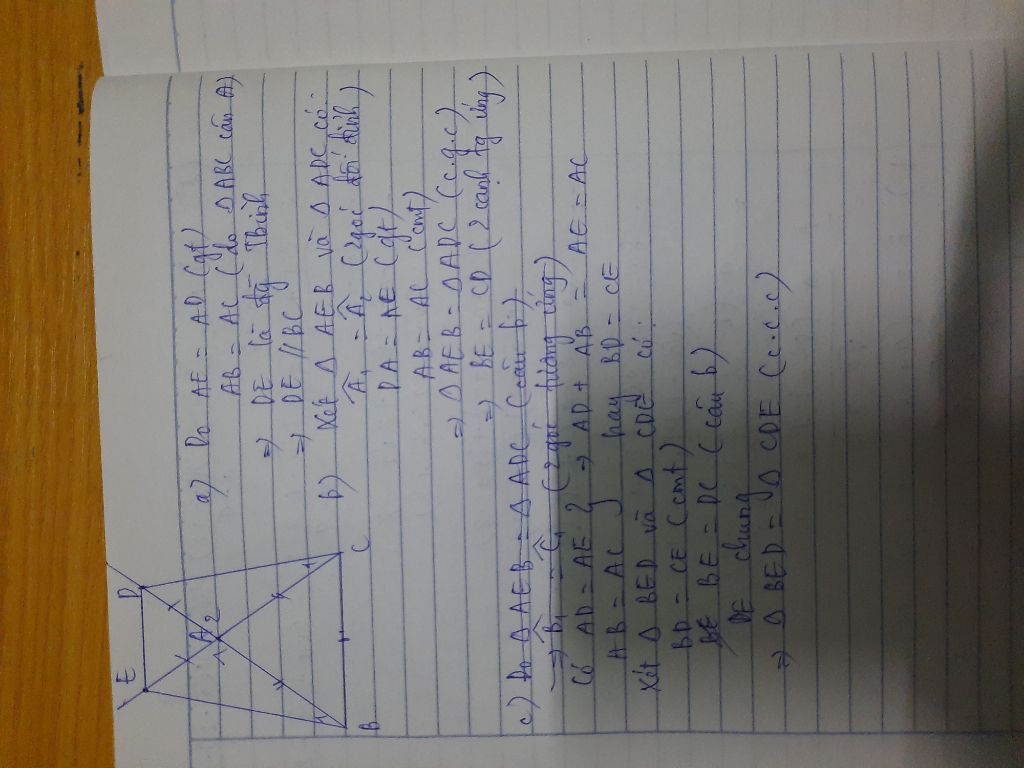 E D
A
1 2
B C
a) Do AE = AD (gt)
AB = AC (do Δ ABC cân A)
=) DE là đg Tbình
=) DE // BC
b) Xét Δ AEB và Δ ADC có:
Â1 = Â2 (2 góc đối đỉnh)
DA = AE (gt)
AB = AC (cmt)
=) Δ AEB = Δ ADC (c.g.c)
=) BE = CD (2 cạnh tg ứng)
c) Do Δ AEB = Δ ADC (câu b)
=) B̂1 = Ĉ1 (2 góc tương ứng)
Có AD = AE } => AD + AB = AE = AC
AB = AC } hay BD = CE
Xét Δ BED và Δ CDE có:
BD = CE (cmt)
BE = DC (câu b)
DE chung
=) Δ BED = Δ CDE (c.c.c)